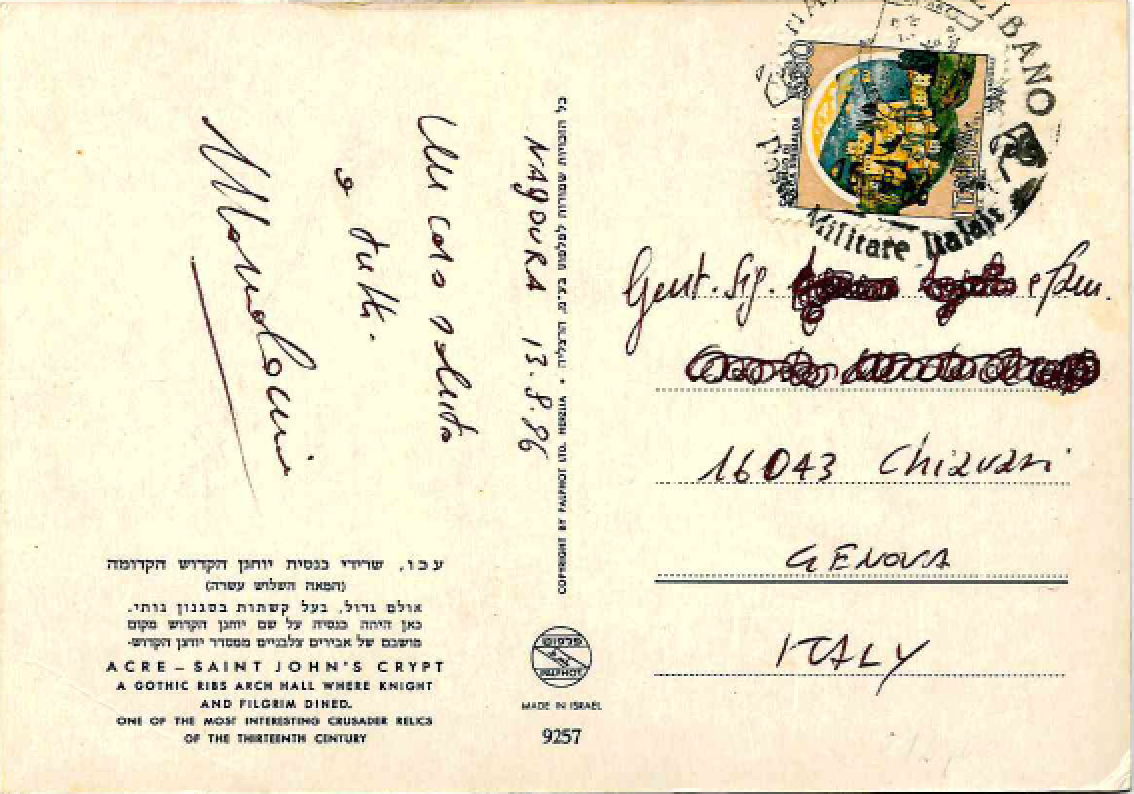 NAQOURA 13.8.96
Un caro saluto
a tutti.
עכו, שרידי כנסית יוחנן הקדוש הקדומה
(המאה השלוש עשרה)
אולם גדול, בעל קשתות בסגנון גותי.
כאן היתה כנסיה על שם יוחנן הקדוש מקום
מושבם של אבירים צלבניים ממסדר יוחנן הקדוש-
ACRE – SAINT JOHN'S CRYPT
A GOTHIC RIBS ARCH HALL WHERE KNIGHT
AND FILGRIM DINED.
ONE OF THE MOST INTERESTING CRUSADER RELICS
OF THE THIRTEENTH CENTURY
כל הזכויות שמורות לפלפוט בע"מ, הרצליה • COPYRIGHT BY PALPHOT LTD. HERZLIA
פלפוט
PALPHOT
MADE IN ISRAEL
9257
LIBANO
Militare
Gent. Sig.
16043 Chiavari
GENOVA
ITALY